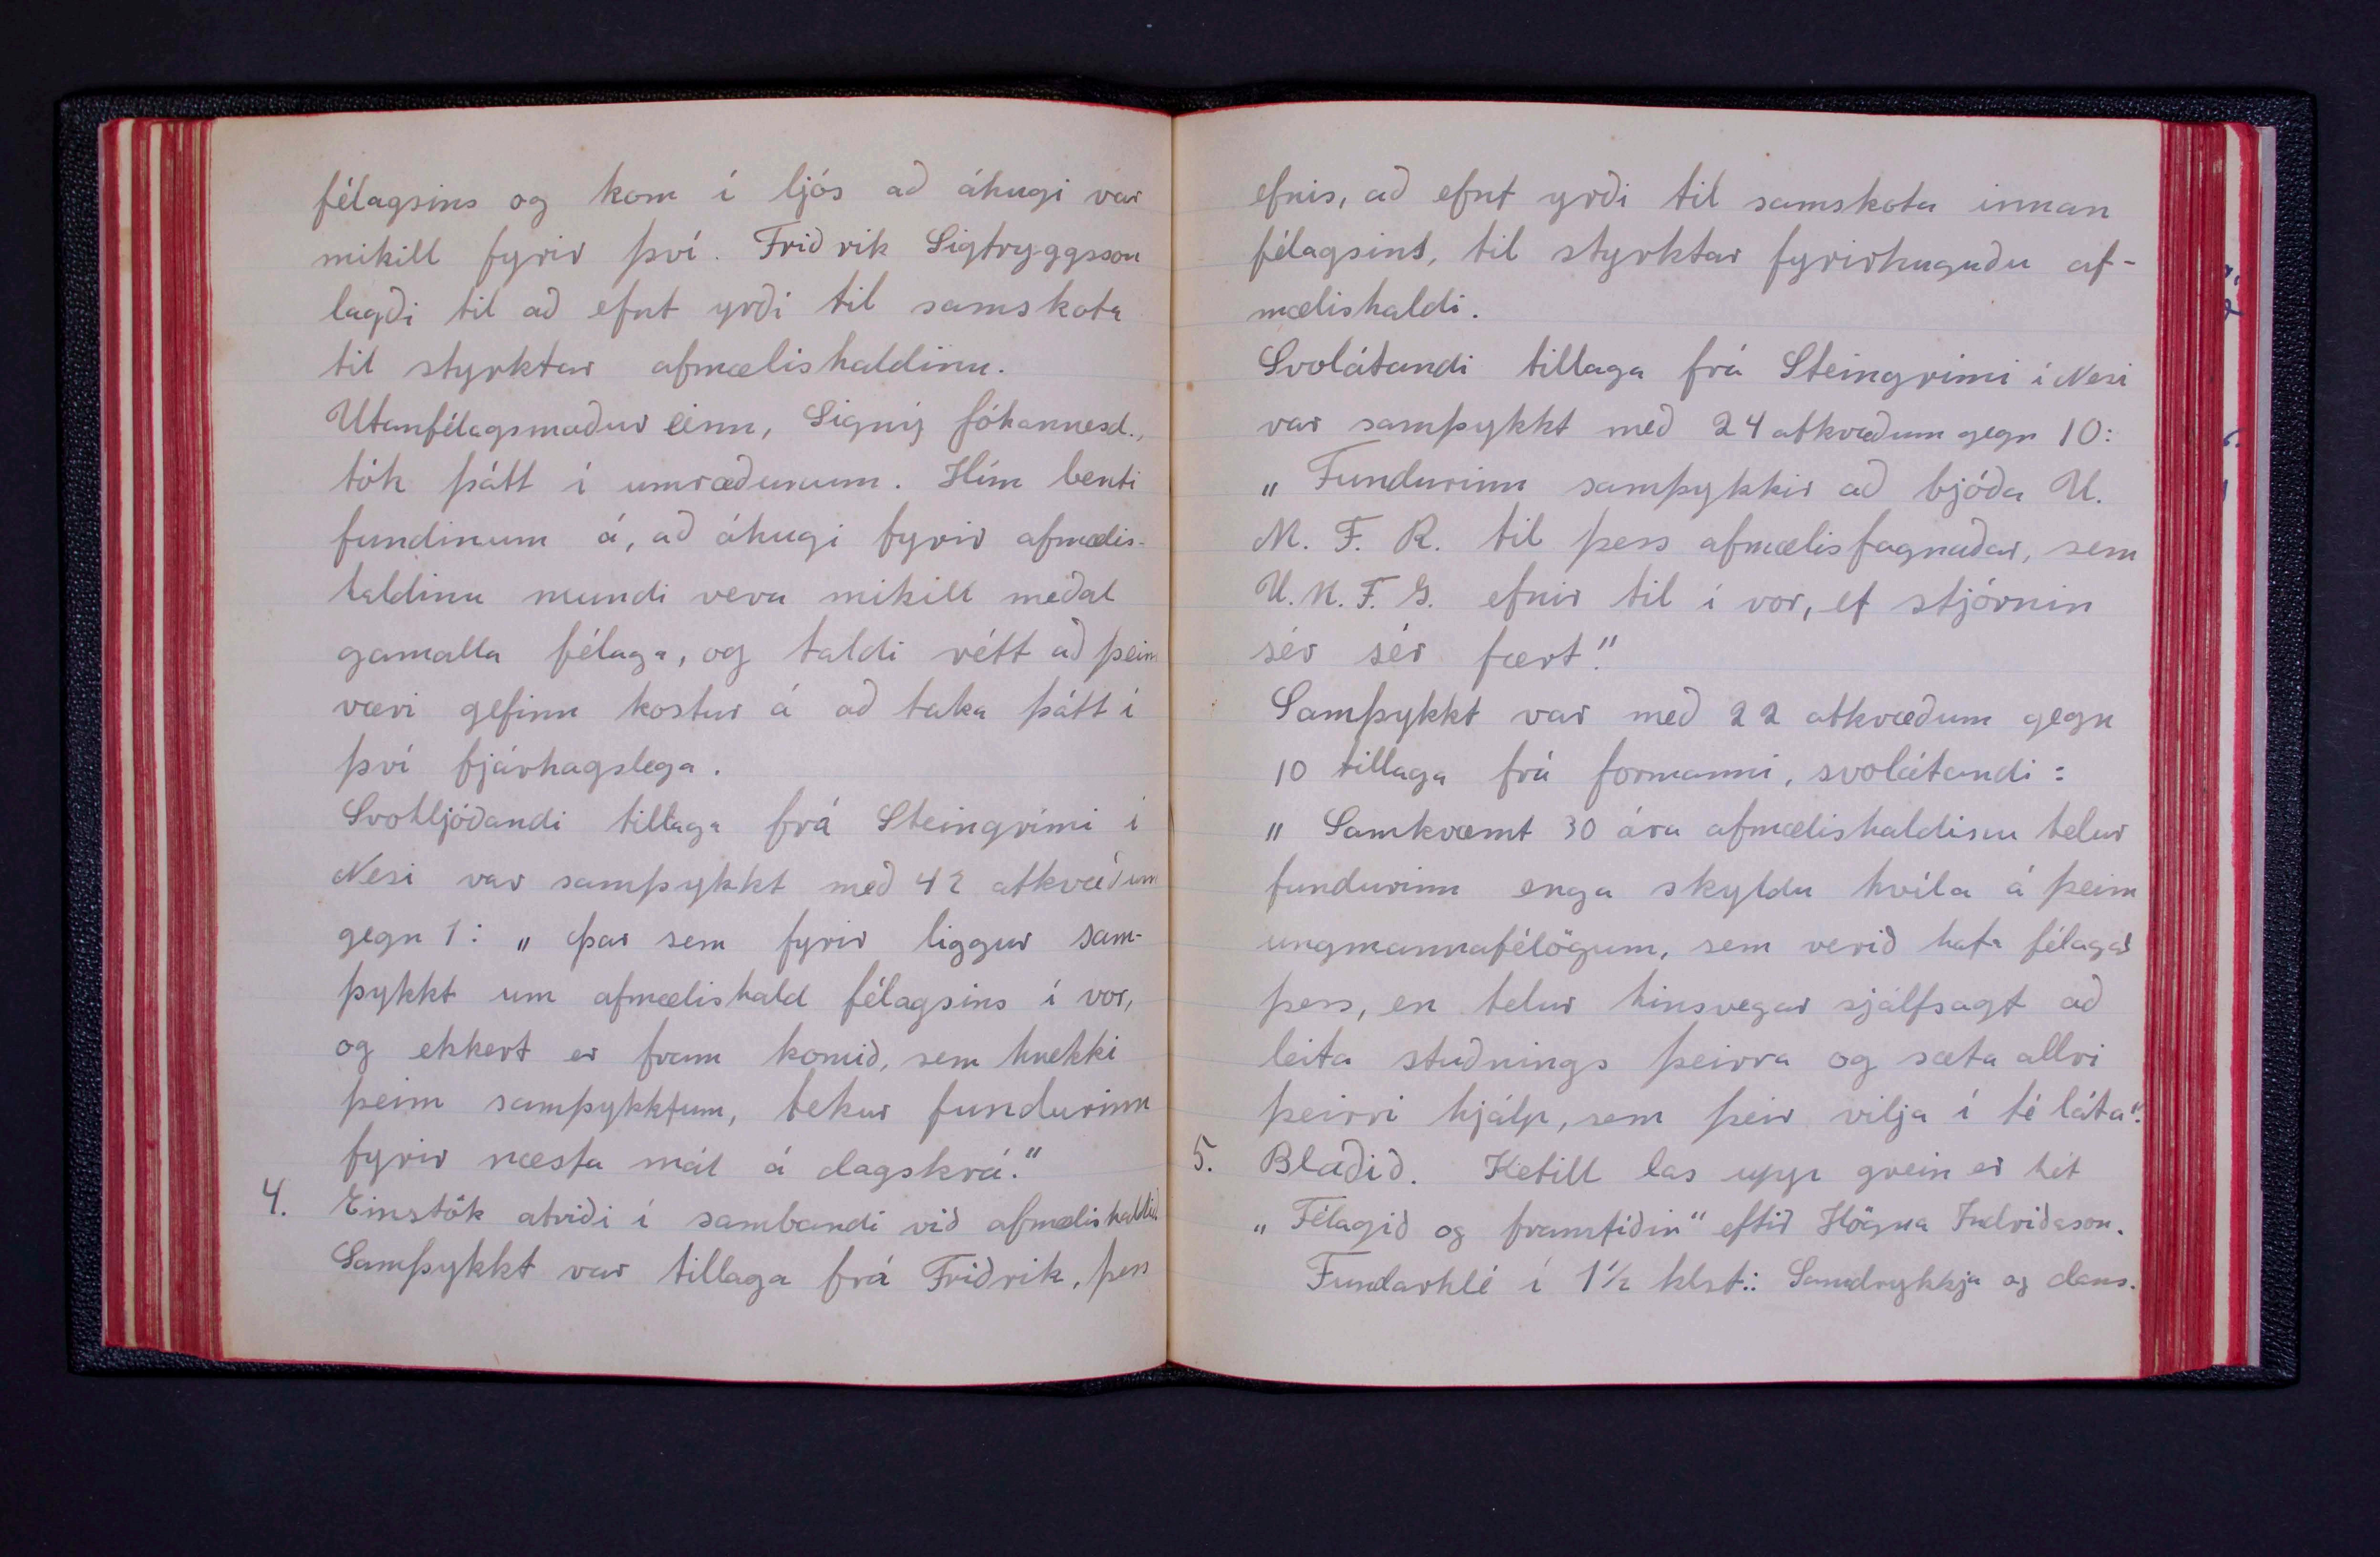 félagsins og kom í ljós að áhugi var
mikill fyrir því. Friðrik Sigtryggsson
lagði til að efnt yrði til samskota
til styrktar afmælishaldinu.
Utanfélagsmaður einn, Signý Jóhannesd.,
tók þátt í umræðunum. Hún benti
fundinum á, að áhugi fyrir afmælis-
haldinu mundi vera mikill meðal
gamalla félaga, og taldi rétt að þeim
væri gefinn kostur á að taka þátt í
því fjárhagslega.
Svohljóðandi tillaga frá Steingrími í
Nesi var samþykkt með 42 atkvæðum
gegn 1: „Þar sem fyrir liggur sam-
þykkt um afmælishald félagsins í vor,
og ekkert er fram komið, sem hnekki
þeim samþykktum, tekur fundurinn
fyrir næsta mál á dagskrá."
4. Einstök atriði í sambandi við afmælishaldið
Samþykkt var tillaga frá Friðrik, þess
efnis, að efnt yrði til samskota innan
félagsins, til styrktar fyrirhuguðu af-
mælishaldi.
Svolátandi tillaga frá Steingrími í Nesi
var samþykkt með 24 atkvæðum gegn 10:
„Fundurinn samþykkir að bjóða U.
M. F. R. til þess afmælisfagnaðar, sem
U. M. F. G. efnir til í vor, ef stjórnin
sér sér fært."
Samþykkt var með 22 atkvæðum gegn
10 tillaga frá formanni, svolátandi:
„Samkvæmt 30 ára afmælishaldinu telur
fundurinn enga skyldu hvíla á þeim
ungmannafélögum, sem verið hafa félagar
þess, en telur hinsvegar sjálfsagt að
leita stuðnings þeirra og sæta allri
þeirri hjálp, sem þeir vilja í té láta".
5. Blaðið. Ketill las upp grein er hét
„Félagið og framtíðin" eftir Högna Indriðason.
Fundarhlé í 1½ klst.: Samdrykkja og dans.